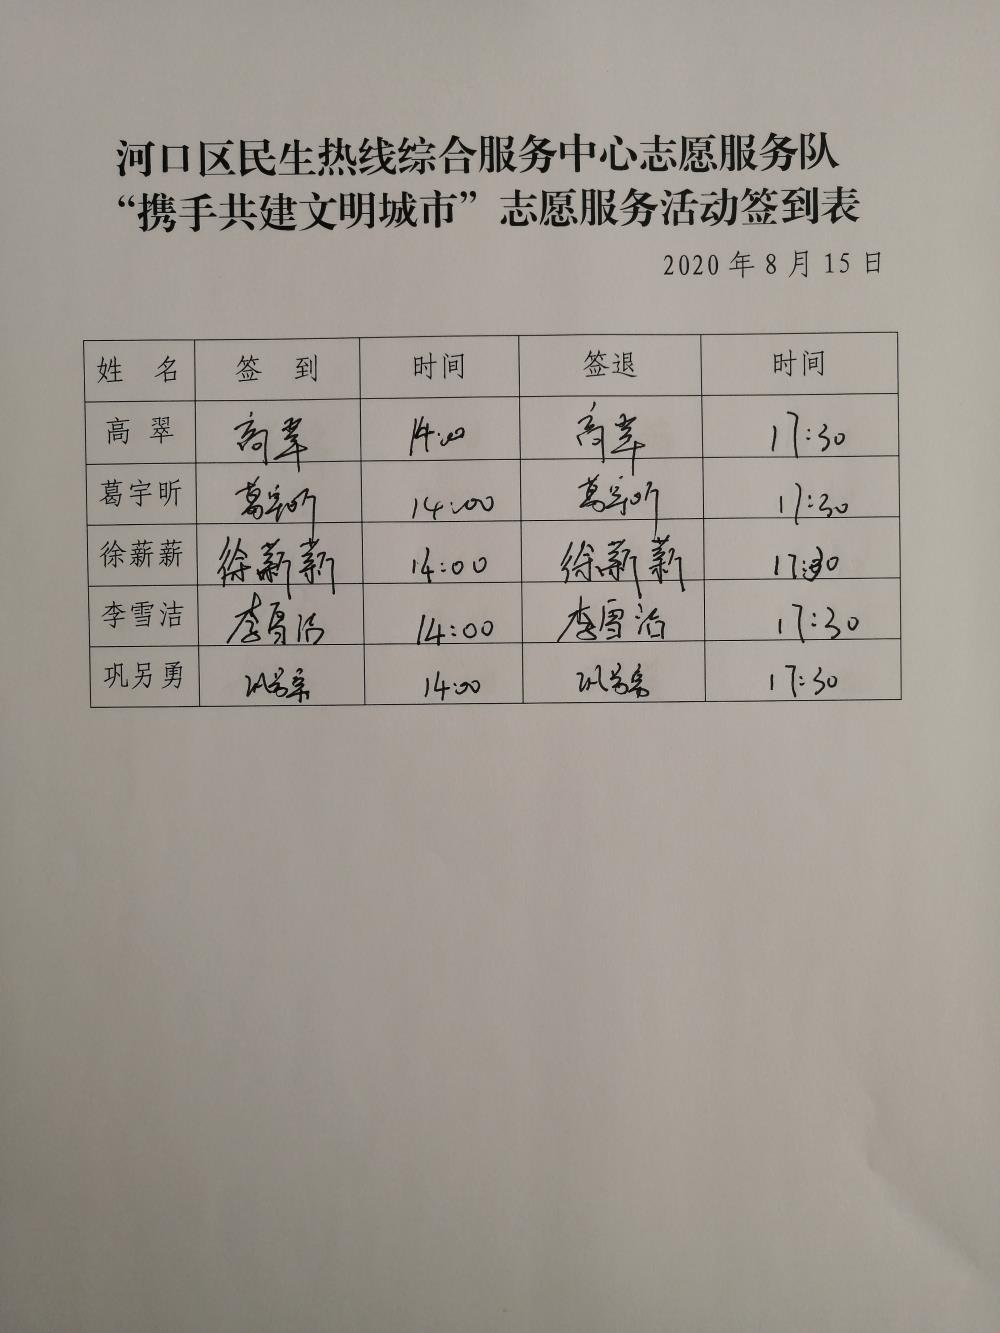 河口区民生热线综合服务中心志愿服务队
“携手共建文明城市”志愿服务活动签到表
2020年8月15日
姓 名 签 到 时间 签退 时间
高 翠 高翠 14:00 高翠 17:30
葛宇昕 葛宇昕 14:00 葛宇昕 17:30
徐薪薪 徐薪薪 14:00 徐薪薪 17:30
李雪洁 李雪洁 14:00 李雪洁 17:30
巩另勇 巩另勇 14:00 巩另勇 17:30